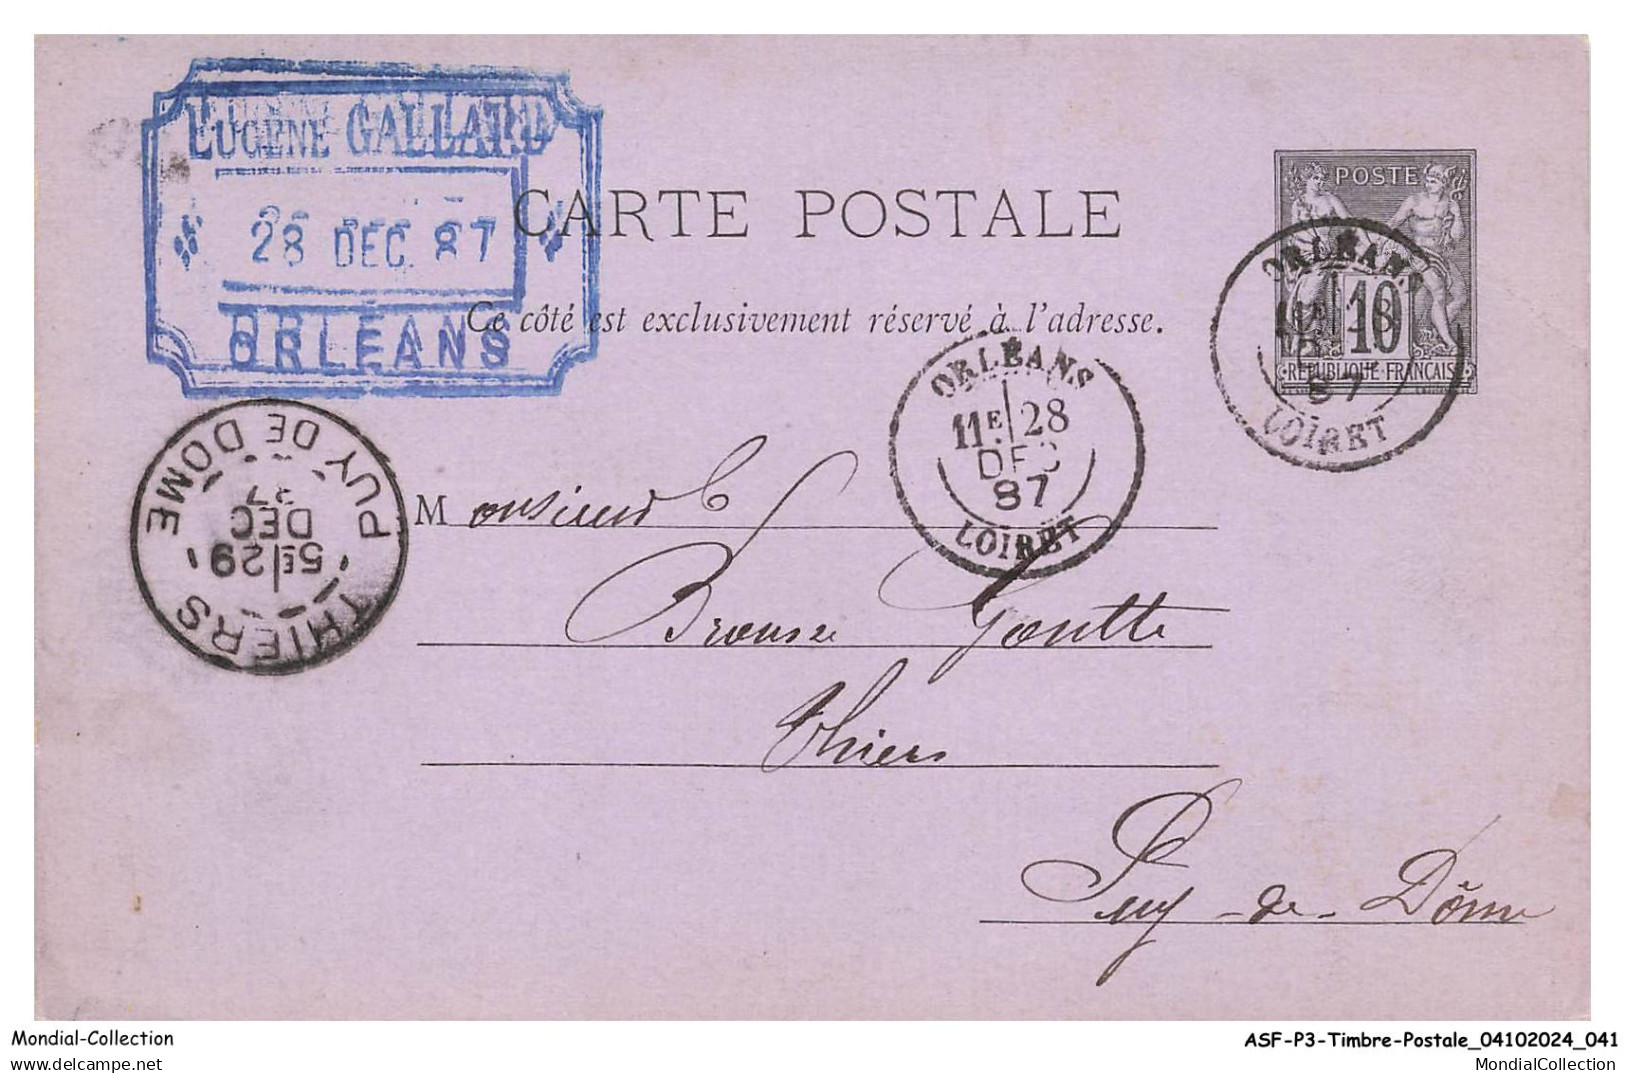 EUGÈNE GALLARD
28 DEC. 87
ORLÉANS
CARTE POSTALE
Ce côté est exclusivement réservé à l'adresse.
POSTE
10
RÉPUBLIQUE FRANÇAISE
ORLÉANS
11E 28
DEC
87
LOIRET
ORLÉANS
11E 28
87
LOIRET
THIERS
5E 29
DEC
87
PUY DE DÔME
Monsieur
Brousse Goutte
Thiers
Puy-de-Dôme
Mondial-Collection
delcampe.net
ASF-P3-Timbre-Postale_04102024_041
MondialCollection